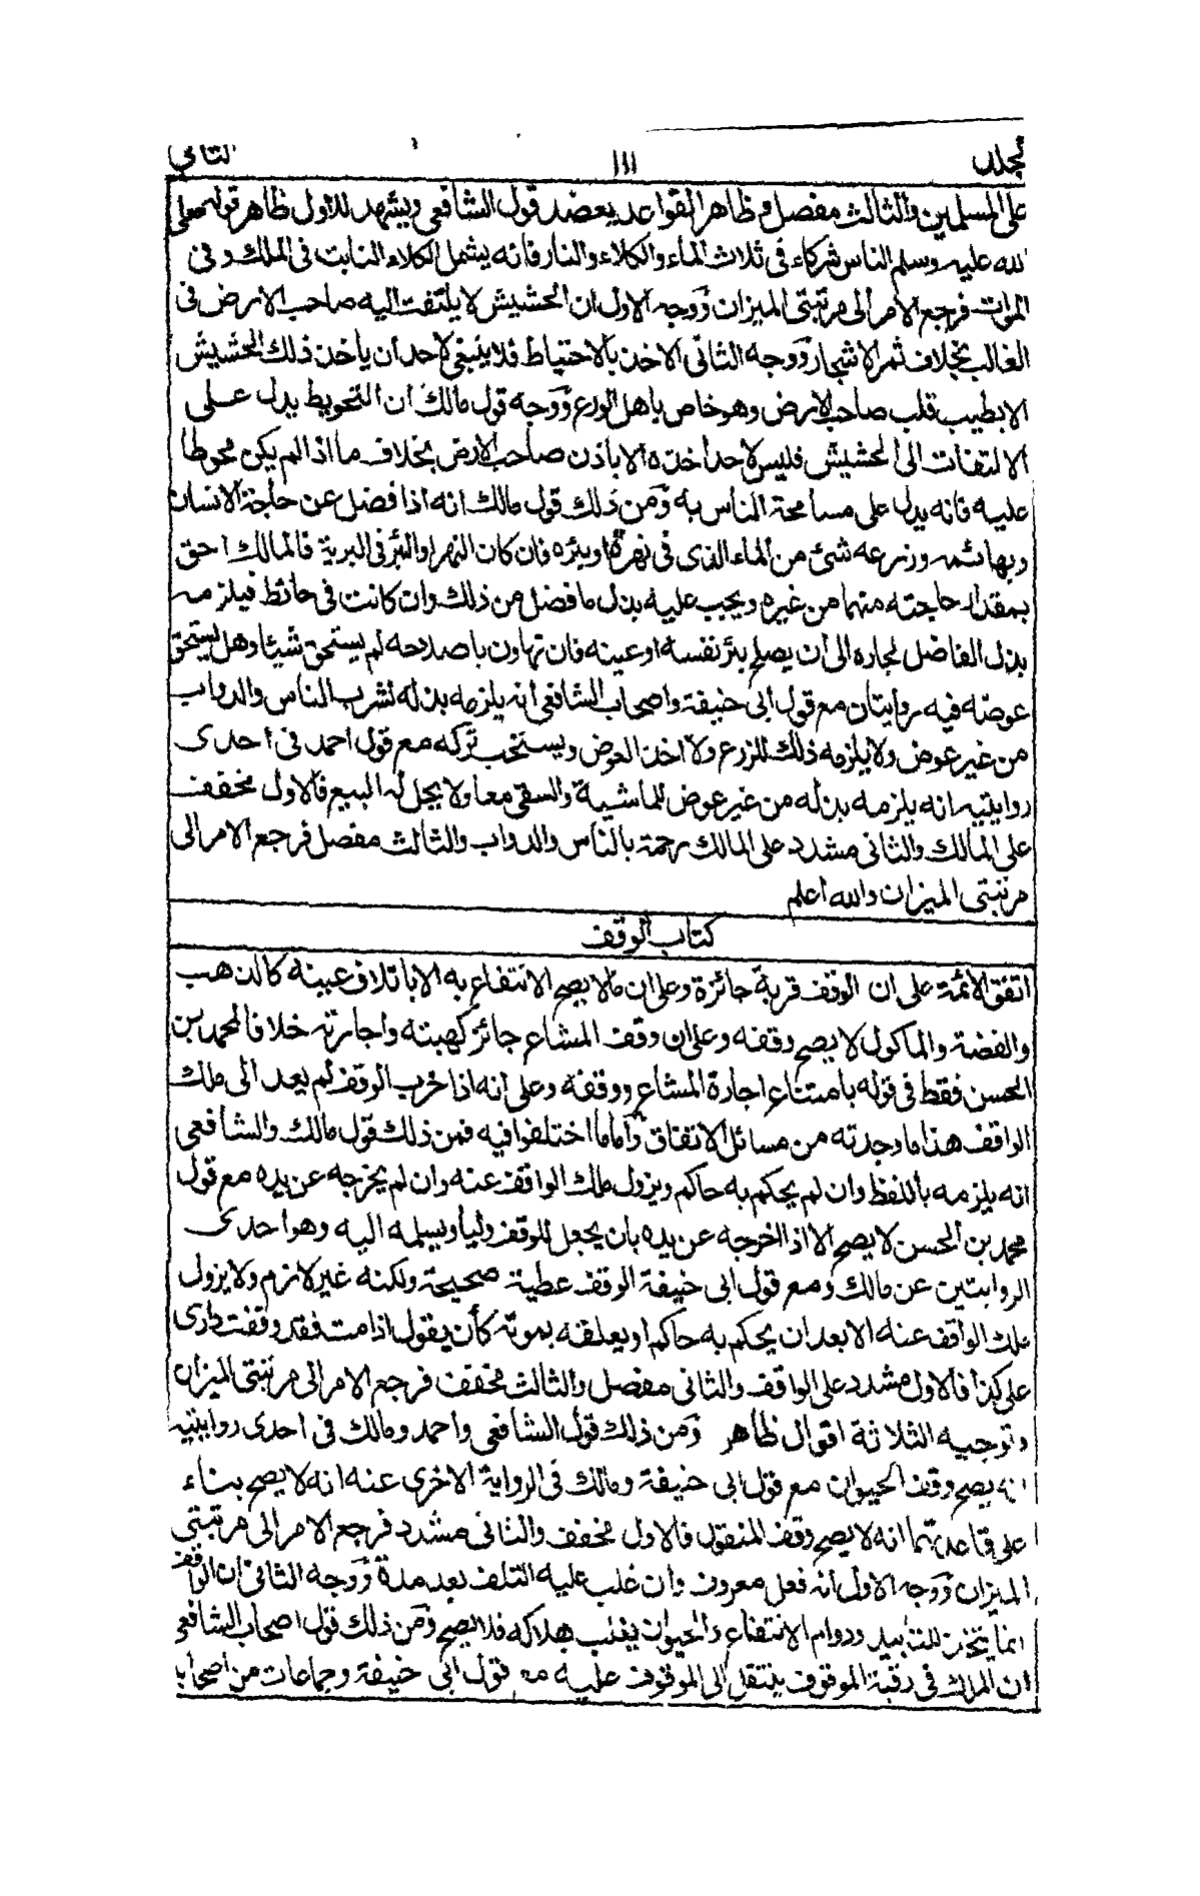 المجلد ١١١ الثاني
على المسلمين والثالث مفصل وظاهر القواعد يعضد قول الشافعي ويشهد للاول ظاهر قوله صلى
الله عليه وسلم الناس شركاء في ثلاث الماء والكلاء والنار فانه يشمل الكلاء النابت في الملك وفي
الموات فرجع الامر الى مرتبتي الميزان ووجه الاول ان الحشيش لا يلتفت اليه صاحب الارض في
الغالب بخلاف ثمر الاشجار ووجه الثاني الاخذ بالاحتياط فلا ينبغي لاحد ان ياخذ ذلك الحشيش
الا بطيب قلب صاحب الارض وهو خاص باهل الورع ووجه قول مالك ان التحويط يدل على
الالتفات الى الحشيش فليس لاحد اخذه الا باذن صاحب الارض بخلاف ما اذا لم يكن محوطا
عليه فانه يدل على مسامحة الناس به ومن ذلك قول مالك انه اذا فضل عن حاجة الانسان
وبهائمه وزرعه شئ من الماء الذي في نهر او بئره فان كان النهر او البئر في البرية فالمالك احق
بمقدار حاجته منهما من غيره ويجب عليه بذل ما فضل من ذلك وان كانت في حائط فيلزمه
بذل الفاضل لجاره الى ان يصلح بئر نفسه او عينه فان تهاون باصلاحه لم يستحق شيئا وهل يستحق
عوضه فيه روايتان مع قول ابي حنيفة واصحاب الشافعي انه يلزمه بذله لشرب الناس والدواب
من غير عوض ولا يلزمه ذلك للزرع ولا اخذ العوض ويستحب تركه مع قول احمد في احدى
روايتيه انه يلزمه بذله من غير عوض للماشية والسقي معا ولا يحل له البيع فالاول مخفف
على المالك والثاني مشدد على المالك رحمة بالناس والدواب والثالث مفصل فرجع الامر الى
مرتبتي الميزان والله اعلم
كتاب الوقف
اتفق الائمة على ان الوقف قربة جائزة وعلى ان ما لا يصح الانتفاع به الا باتلاف عينه كالذهب
والفضة والماكول لا يصح وقفه وعلى ان وقف المشاع جائز كهبته واجارته خلافا لمحمد بن
الحسن فقط في قوله بامتناع اجارة المشاع ووقفه وعلى انه اذا خرب الوقف لم يعد الى ملك
الواقف هذا ما وجدته من مسائل الاتفاق واما ما اختلفوا فيه فمن ذلك قول مالك والشافعي
انه يلزمه باللفظ وان لم يحكم به حاكم ويزول ملك الواقف عنه وان لم يخرجه عن يده مع قول
محمد بن الحسن لا يصح الا اذا اخرجه عن يده بان يجعل للوقف وليا ويسلمه اليه وهو احدى
الروايتين عن مالك ومع قول ابي حنيفة الوقف عطية صحيحة ولكنه غير لازم ولا يزول
ملك الواقف عنه الا بعد ان يحكم به حاكم او يعلقه بموته كأن يقول اذا مت فقد وقفت داري
على كذا فالاول مشدد على الواقف والثاني مفصل والثالث مخفف فرجع الامر الى مرتبتي الميزان
وتوجيه الثلاثة اقوال ظاهر ومن ذلك قول الشافعي واحمد ومالك في احدى روايتيه
انه يصح وقف الحيوان مع قول ابي حنيفة ومالك في الرواية الاخرى عنه انه لا يصح بناء
على قاعدتهما انه لا يصح وقف المنقول فالاول مخفف والثاني مشدد فرجع الامر الى مرتبتي
الميزان ووجه الاول انه فعل معروف وان غلب عليه التلف بعد مدة ووجه الثاني ان الواقف
انما يتخذ للتأبيد ودوام الانتفاع والحيوان يغلب هلاكه فلا يصح ومن ذلك قول اصحاب الشافعي
ان الملك في رقبة الموقوف ينتقل الى الموقوف عليه مع قول ابي حنيفة وجماعات من اصحاب